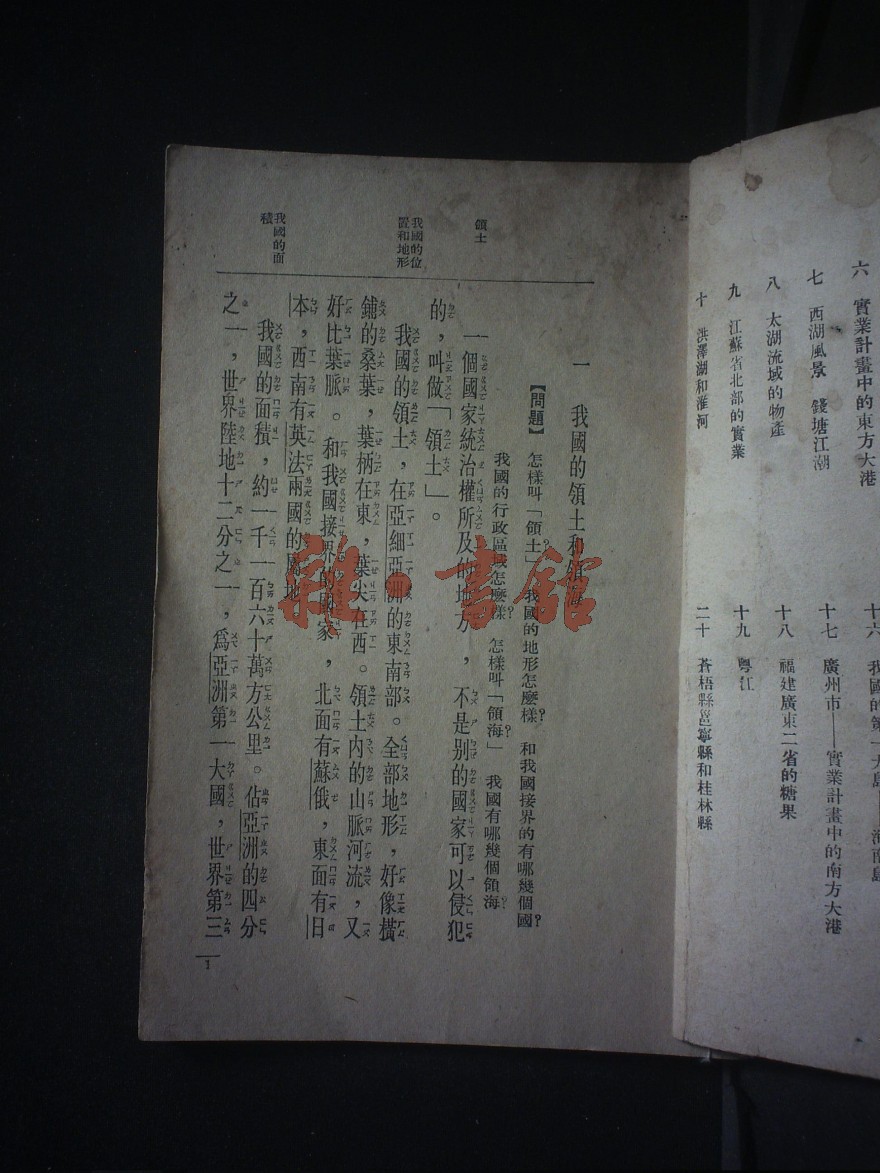 六　實業計畫中的東方大港
七　西湖風景　錢塘江潮
八　太湖流域的物產
九　江蘇省北部的實業
十　洪澤湖和淮河
十六　我國的第一大島——海南島
十七　廣州市——實業計畫中的南方大港
十八　福建廣東二省的糖果
十九　粵江
二十　蒼梧縣邕寧縣和桂林縣
一　我國的領土和領海
【問題】　怎樣叫「領土」？　我國的地形怎麼樣？　和我國接界的有哪幾個國？
我國的行政區域怎麼樣？　怎樣叫「領海」？　我國有哪幾個領海？
領土
一個國家統治權所及的地方，不是別的國家可以侵犯
的，叫做「領土」。
我國的位
置和地形
我國的領土，在亞細亞洲的東南部。全部地形，好像橫
鋪的桑葉，葉柄在東，葉尖在西。領土內的山脈河流，又
好比葉脈。和我國接界的國家，北面有蘇俄，東面有日
本，西南有英法兩國的屬地。
我國的面
積
我國的面積，約一千一百六十萬方公里。佔亞洲的四分
之一，世界陸地十二分之一，爲亞洲第一大國，世界第三
1
雜·書館